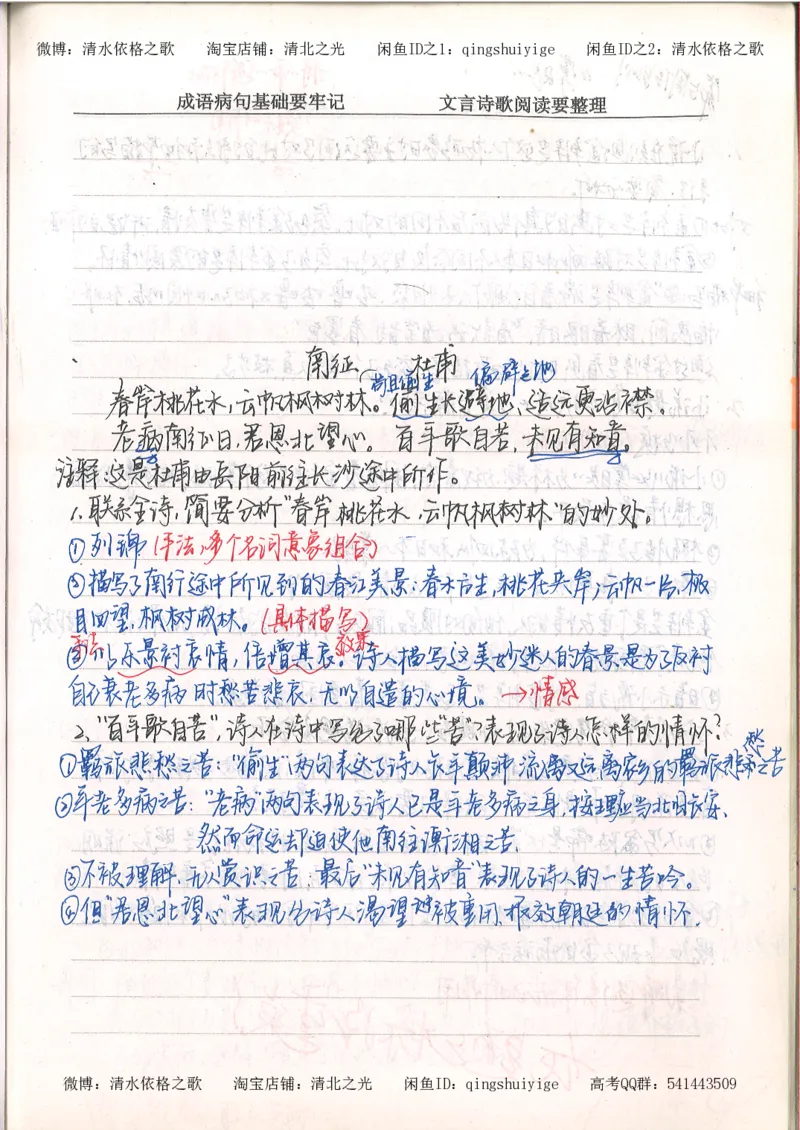 微博：清水依格之歌 淘宝店铺：清北之光 闲鱼ID之1：qingshuiyige 闲鱼ID之2：清水依格之歌
成语病句基础要牢记 文言诗歌阅读要整理
南征 杜甫
苟且偷生 偏僻之地
春岸桃花水，云帆枫树林。偷生长避地，适远更沾襟。
老病南征日，君恩北望心。百年歌自苦，未见有知音。
注释：这是杜甫由岳阳前往长沙途中所作。
1.联系全诗，简要分析"春岸桃花水，云帆枫树林"的妙处。
①列锦（手法，多个名词意象组合）
②描写了南行途中所见到的春江美景：春水方生，桃花夹岸；云帆一片，极
目四望，枫树成林。（具体描写）
手法 效果
③以乐景衬哀情，倍增其哀。诗人描写这美妙迷人的春景是为了反衬
自己衰老多病时愁苦悲哀、无以自遣的心境。→情感
2、"百年歌自苦"，诗人在诗中写出了哪些"苦"？表现了诗人怎样的情怀？
①羁旅悲愁之苦："偷生"两句表达了诗人长年颠沛流离又远离家乡的羁旅悲愁之苦
②年老多病之苦："老病"两句表现了诗人已是年老多病之身，按理应当北归长安，
然而命运却迫使他南往湖湘之苦.
③不被理解，无人赏识之苦；最后"未见有知音"表现了诗人的一生苦吟。
④但"君恩北望心"表现出诗人渴望被重用、报效朝廷的情怀.
微博：清水依格之歌 淘宝店铺：清北之光 闲鱼ID：qingshuiyige 高考QQ群：541443509